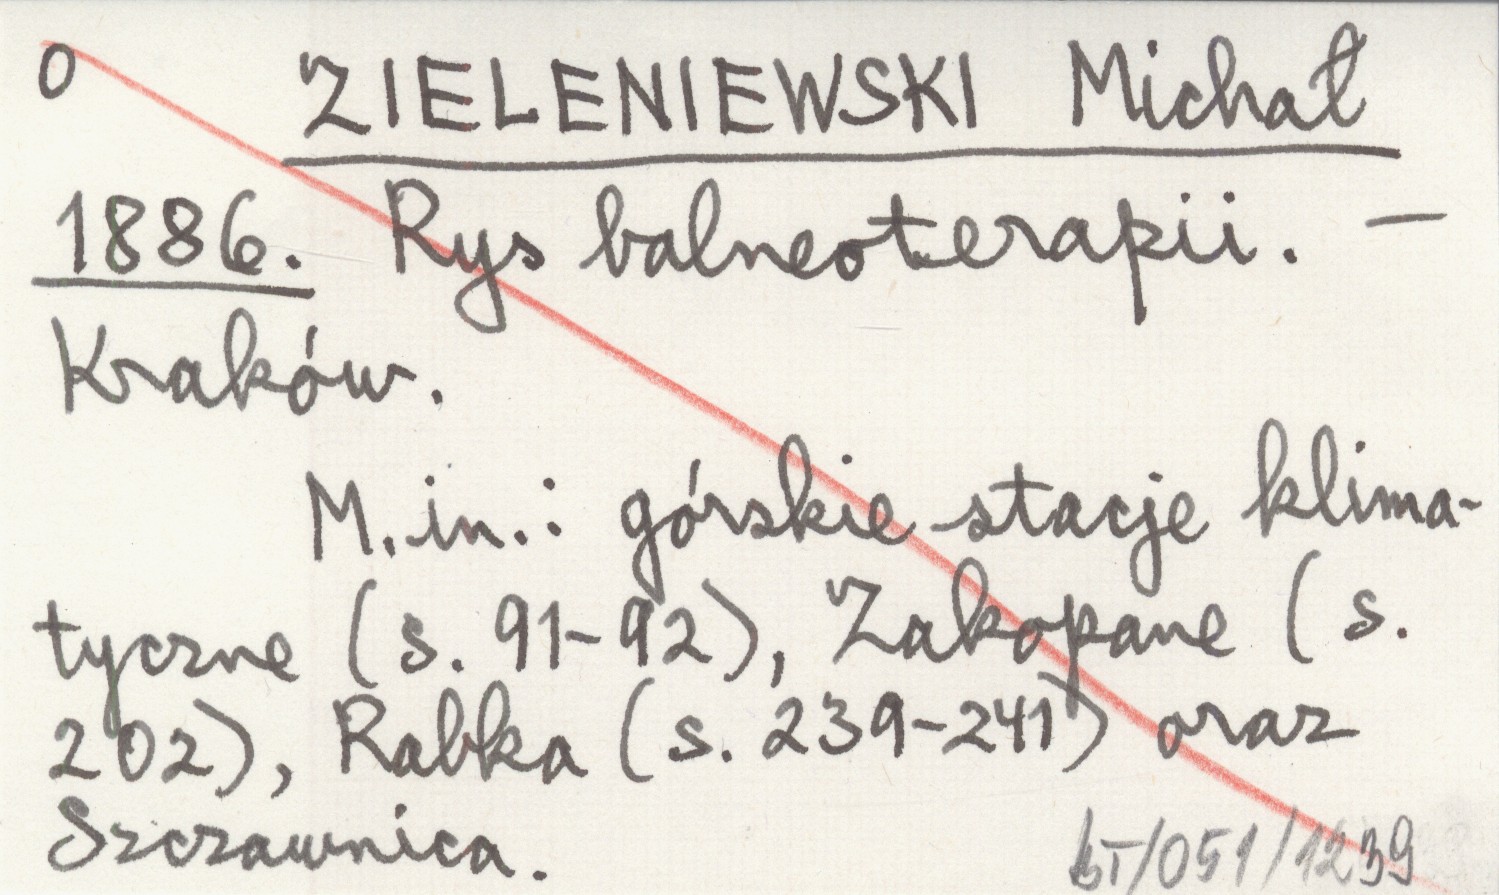 0 ZIELENIEWSKI Michał
1886. Rys balneoterapii. —
Kraków.
M.in.: górskie stacje klima-
tyczne (s. 91-92), Zakopane (s.
202), Rabka (s. 239-241) oraz
Szczawnica.
bT/051/1239